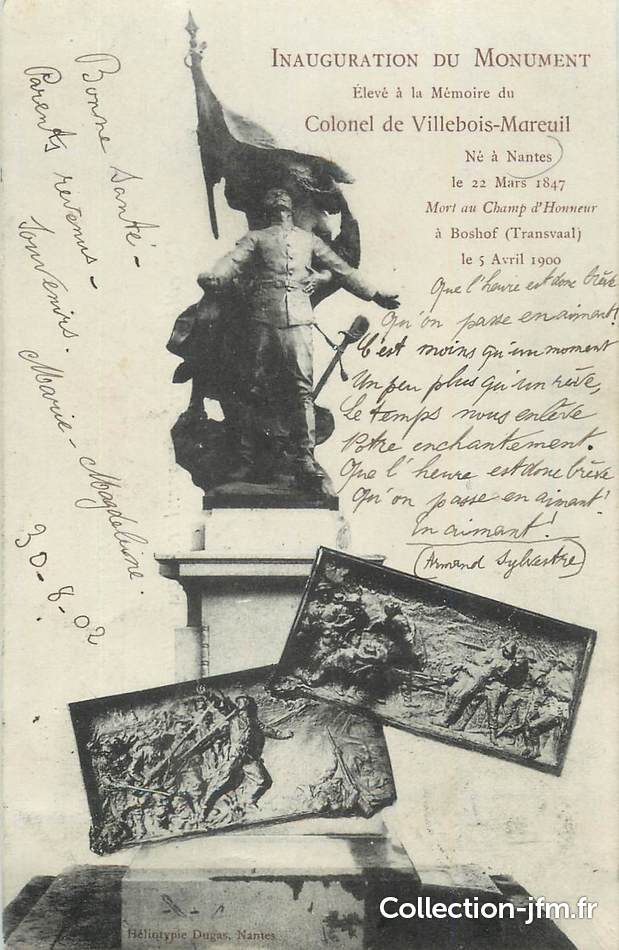 INAUGURATION DU MONUMENT
Élevé à la Mémoire du
Colonel de Villebois-Mareuil
Né à Nantes
le 22 Mars 1847
Mort au Champ d'Honneur
à Boshof (Transvaal)
le 5 Avril 1900
Que l'heure est donc brève
Qu'on passe en aimant!
C'est moins qu'un moment
Un peu plus qu'un rêve,
Le temps nous enlève
Notre enchantement.
Que l'heure est donc brève
Qu'on passe en aimant!
En aimant!
(Armand Sylvestre)
Bonne Santé -
Parents revenus -
Souvenirs. Marie-Magdeleine.
30-8-02
Héliotypie Dugas, Nantes
Collection-jfm.fr